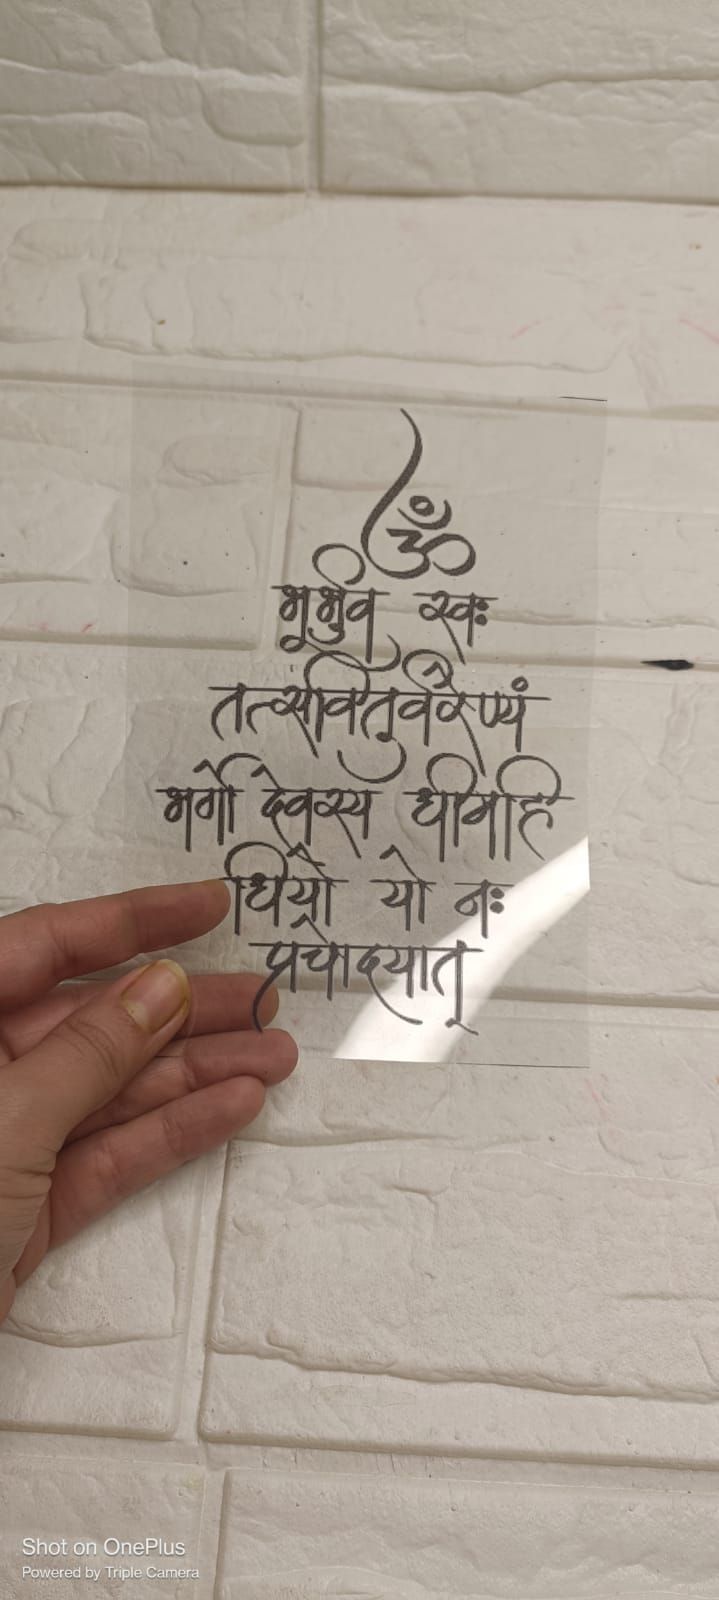 ॐ
भूर्भुव स्वः
तत्सवितुर्वरेण्यं
भर्गो देवस्य धीमहि
धियो यो नः
प्रचोदयात्
Shot on OnePlus
Powered by Triple Camera